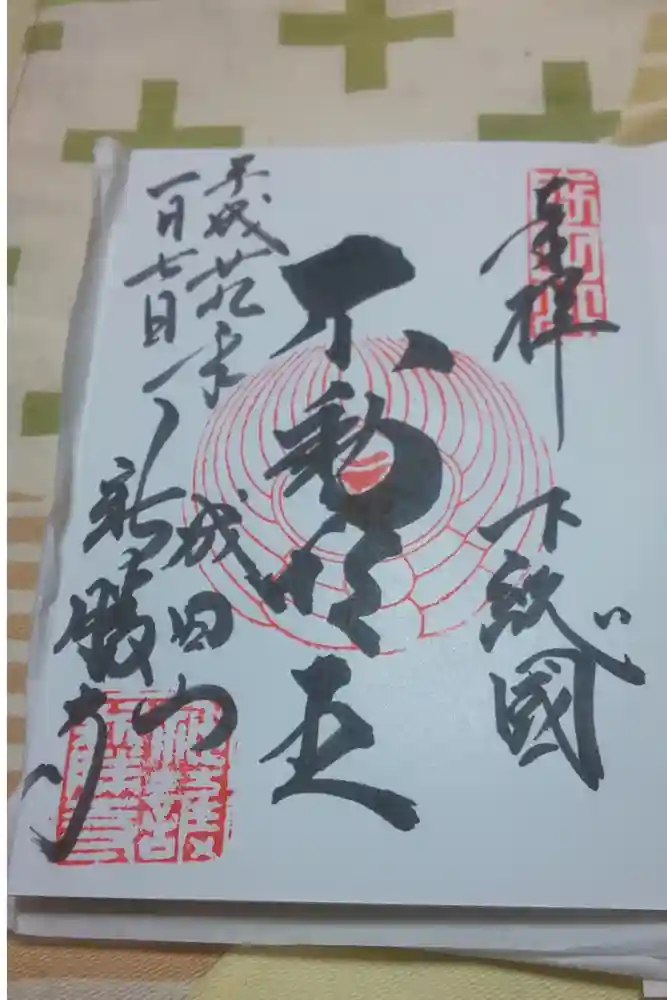 奉拝
下総國
不動明王
平成廿九年
一月七日
成田山
新勝寺